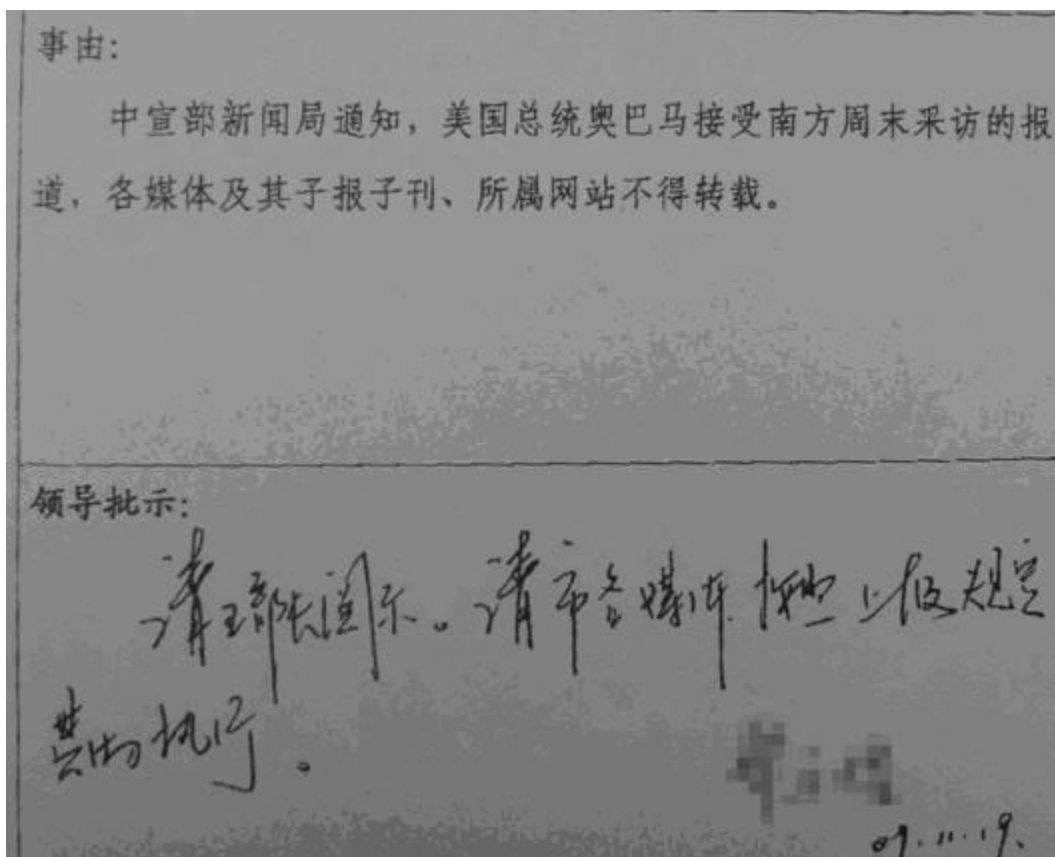 事由:
中宣部新闻局通知，美国总统奥巴马接受南方周末采访的报
道，各媒体及其子报子刊、所属网站不得转载。
领导批示:
请王部长阅示。请市各媒体按照上级规定
贯彻执行。
09.11.19.